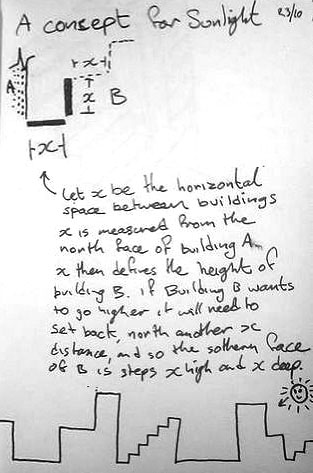 A concept for Sunlight 23/10
x
A
x
B
x
Let x be the horizontal
space between buildings
x is measured from the
north face of building A.
x then defines the height of
building B. If Building B wants
to go higher it will need to
set back, north another x
distance, and so the sothern face
of B is steps x high and x deep.